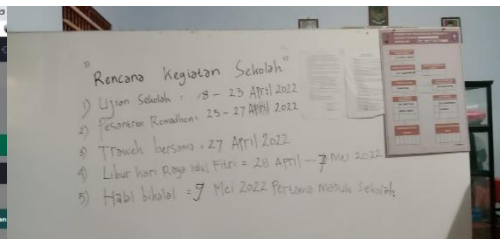 "Rencana Kegiatan Sekolah"
1) Ujian Sekolah : 18 - 23 April 2022
2) Pesantren Romadhon : 25 - 27 April 2022
3) Traweh bersama : 27 April 2022
4) Libur hari Raya Idul Fitri = 28 April - 7 Mei 2022
5) Halal bihalal = 9 Mei 2022 Pertama masuk sekolah